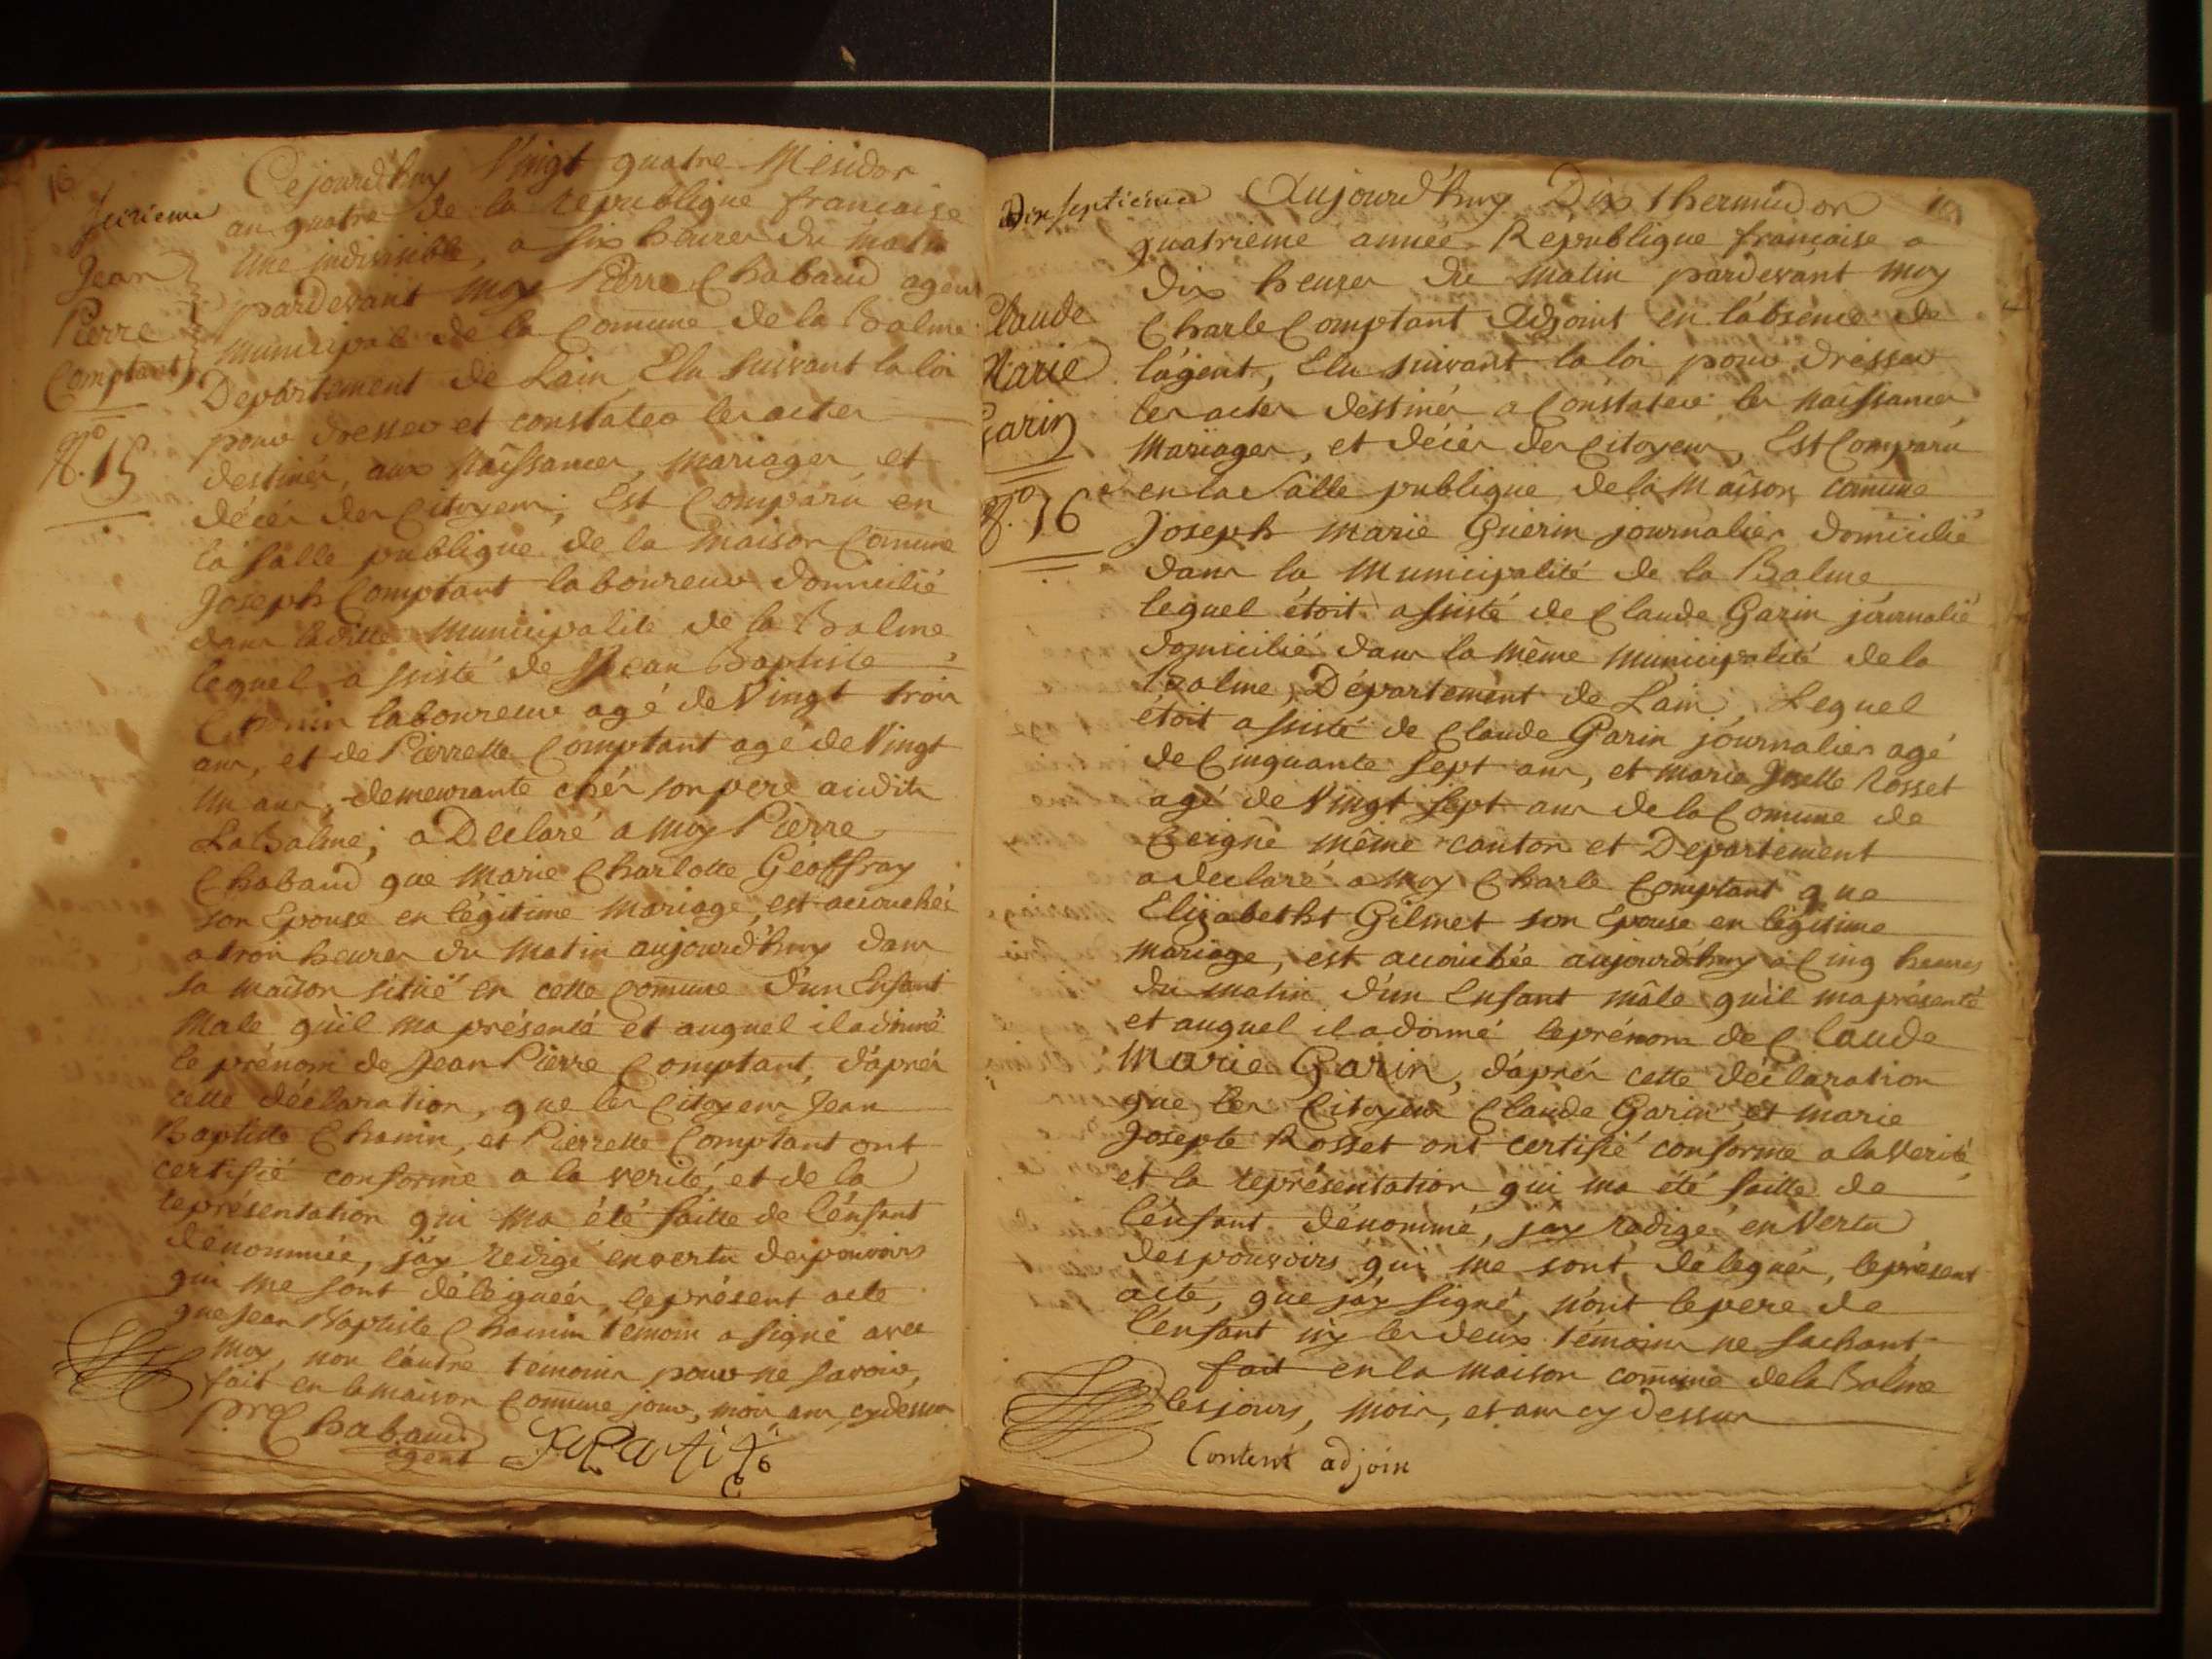 16
Seizieme
Jean
Pierre
Comptant
N.º 15
Cejourd'huy Vingt quatre Mesidor
an quatre de la republique francaise
Une indivisible, a six heures du matin
pardevant moy Pierre Chabaud agent
municipale de la Comune de la Balme
Departement de Lain Elu suivant la loi
pour dresser et constater les actes
destinés, aux Naissances, mariages, et
décés des Citoyens, Est Comparu en
la salle publique de la maison Comune
Joseph Comptant laboureur domicilié
dans laditte municipalité de la Balme
lequel assisté de Jean Baptiste
Chanin laboureur agé de Vingt trois
ans, et de Pierrette Comptant agé de Vingt
Un ans, demeurante chés son pere audit
La Balme; a Déclaré a moy Pierre
Chabaud que marie Charlotte Geoffray
son Epouse en légitime mariage, est accouchée
a trois heures du matin aujourd'huy dans
sa maison sitüé en cette Comune d'un Enfant
Male qu'il ma présenté et auquel il a donné
le prénom de Jean Pierre Comptant, d'aprés
cette déclaration, que les Citoyens Jean
Baptiste Chanin, et Pierrette Comptant ont
certifié conforme a la verité, et de la
représentation qui ma été faitte de l'énfant
dénommée, j'ay redigé en vertu des pouvoirs
qui me sont déléguéés, le présent acte
que Jean Baptiste Chanin témoin a signé avec
moy, non l'autre temoins pour ne savoir,
fait en la maison Comune jour, mois ans cy dessus
Pre Chabaud
agent
Dix septieme
Claude
Marie
Garin
N.º 16
Aujourd'huy Dix thermidor
quatrieme année Republique francaise a
dix heures du matin pardevant moy
Charle Comptant Adjoint en l'absence de
l'ágent, Elu suivant la loi pour dresser
les actes destinés a Constater les naissances
Mariages, et décés des Citoyens, Est Comparu
en la Salle publique de la Maison comune
Joseph Marie Guerin journalier domicilié
dans la Municipalité de la Balme
lequel étoit assisté de Claude Garin journalié
domicilié dans la même municipalité de la
Balme, Département de Lain, Lequel
étoit assisté de Claude Garin journalier agé
de Cinquante sept ans, et marie Josette Rosset
agé de Vingt sept ans de la Comune de
Ceigne même canton et Departement
a declaré a moy Charle Comptant que
Elizabetht Gilmet son Epouse en légitime
mariage, est accouchée aujourd'huy a Cinq heures
du matin d'un Enfant mâle qu'il ma présenté
et auquel il a donné le prénom de Claude
Marie Garin, d'aprés cette déclaration
que les Citoyens Claude Garin et marie
Josepte Rosset ont certifié conforme a la verité
et la représentation qui ma été faitte de
l'énfant dénommé, j'ay redigé en Vertu
des pouvoirs qui me sont délégués, le présent
acte, que j'ay signé, n'ont le pere de
l'enfant ny les deux témoins ne sachant,
fait en la maison comune de la Balme
les jours, mois, et ans cy dessus
Content adjoin